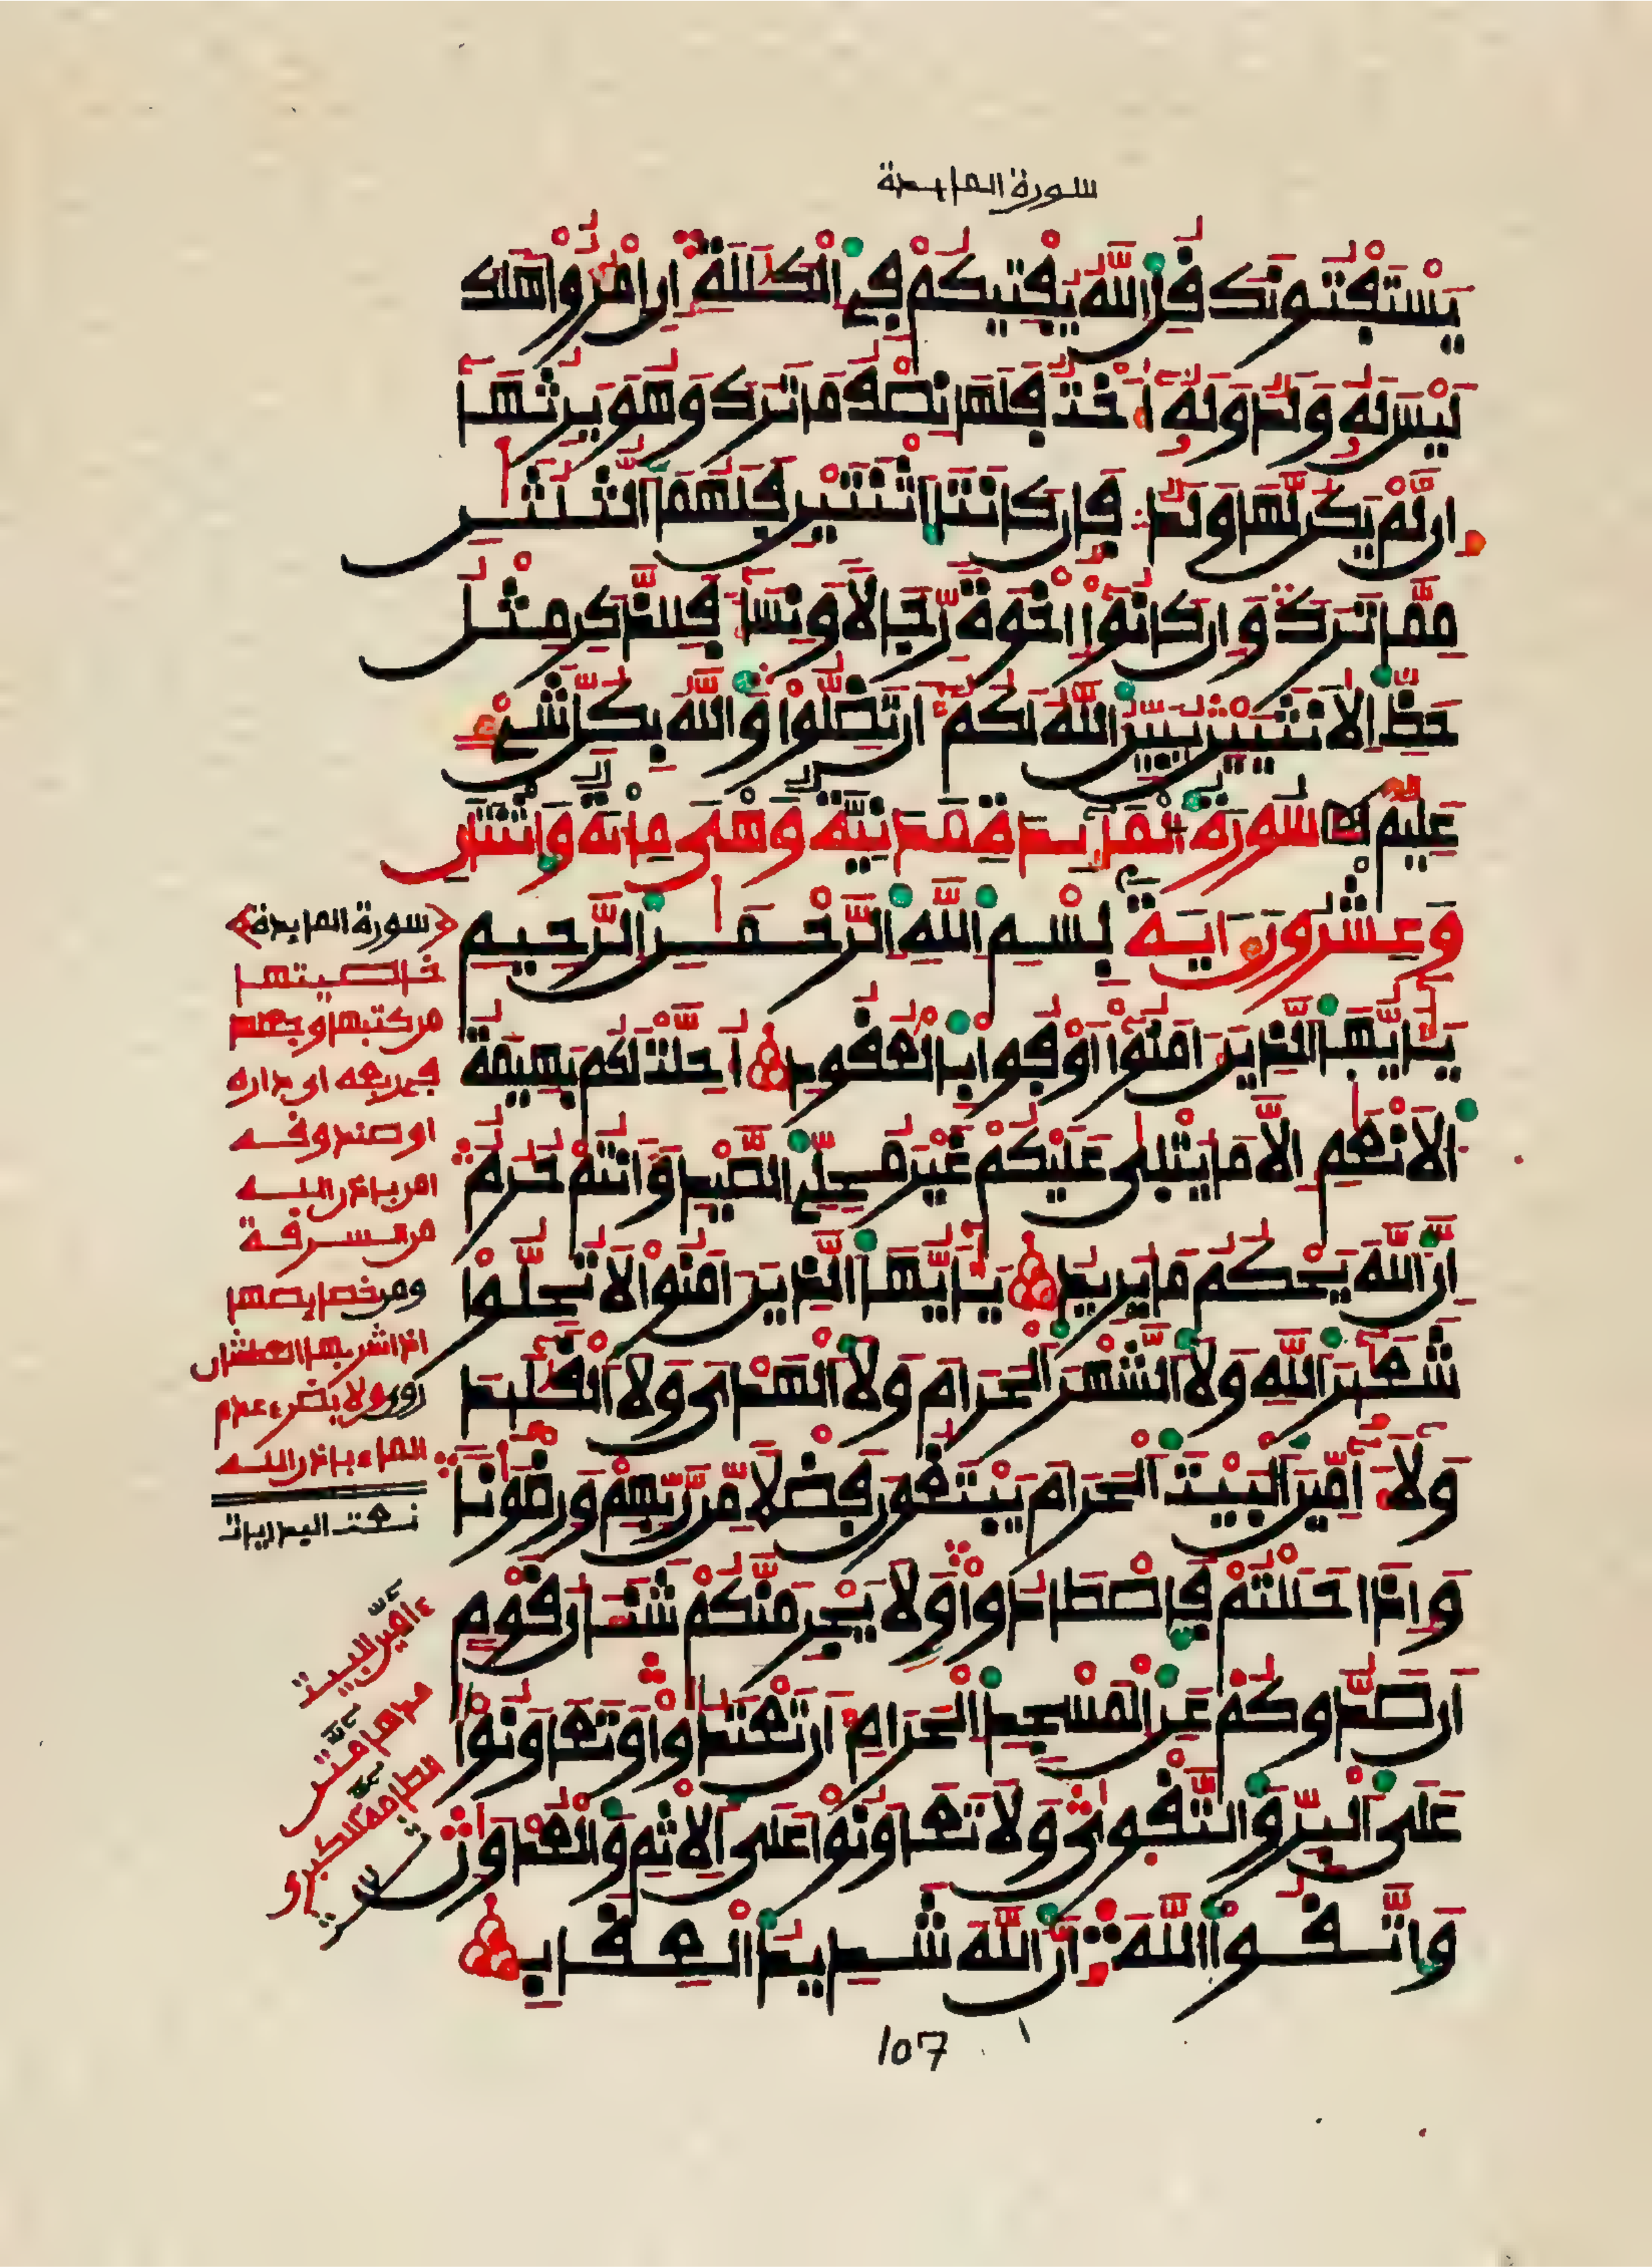 سورة المايدة
يَسْتَفْتُونَكَ قُلِ اللَّهُ يُفْتِيكُمْ فِي الْكَلَلَةِ إِنِ امْرُؤٌا هَلَكَ
لَيْسَ لَهُ وَلَدٌ وَلَهُ أُخْتٌ فَلَهَا نِصْفُ مَا تَرَكَ وَهُوَ يَرِثُهَا
إِن لَّمْ يَكُن لَّهَا وَلَدٌ فَإِن كَانَتَا اثْنَتَيْنِ فَلَهُمَا الثُّلُثَنِ
مِمَّا تَرَكَ وَإِن كَانُوا إِخْوَةً رِّجَالًا وَنِسَاءً فَلِلذَّكَرِ مِثْلُ
حَظِّ الْأُنثَيَيْنِ يُبَيِّنُ اللَّهُ لَكُمْ أَن تَضِلُّوا وَاللَّهُ بِكُلِّ شَيْءٍ
عَلِيمٌ سُورَةُ الْمَايِدَةِ مَدَنِيَّةٌ وَهْيَ مِائَةٌ وَاثْنَتَانِ
وَعِشْرُونَ ءَايَةً بِسْمِ اللَّهِ الرَّحْمَنِ الرَّحِيمِ
يَأَيُّهَا الَّذِينَ ءَامَنُوا أَوْفُوا بِالْعُقُودِ أُحِلَّتْ لَكُم بَهِيمَةُ
الْأَنْعَمِ إِلَّا مَا يُتْلَى عَلَيْكُمْ غَيْرَ مُحِلِّي الصَّيْدِ وَأَنتُمْ حُرُمٌ
إِنَّ اللَّهَ يَحْكُمُ مَا يُرِيدُ يَأَيُّهَا الَّذِينَ ءَامَنُوا لَا تُحِلُّوا
شَعَئِرَ اللَّهِ وَلَا الشَّهْرَ الْحَرَامَ وَلَا الْهَدْيَ وَلَا الْقَلَئِدَ
وَلَا ءَامِّينَ الْبَيْتَ الْحَرَامَ يَبْتَغُونَ فَضْلًا مِّن رَّبِّهِمْ وَرِضْوَنًا
وَإِذَا حَلَلْتُمْ فَاصْطَادُوا وَلَا يَجْرِمَنَّكُمْ شَنَئَانُ قَوْمٍ
أَن صَدُّوكُمْ عَنِ الْمَسْجِدِ الْحَرَامِ أَن تَعْتَدُوا وَتَعَاوَنُوا
عَلَى الْبِرِّ وَالتَّقْوَى وَلَا تَعَاوَنُوا عَلَى الْإِثْمِ وَالْعُدْوَنِ
وَاتَّقُوا اللَّهَ إِنَّ اللَّهَ شَدِيدُ الْعِقَابِ
107
سورة المايدة
خاصيتها
من كتبها وجعلها
في ربعه او داره
او صندوقه
امن باذن الله
من سرقة
ومن خصايصها
اذا شربها العطشان
روي ولا يضره عدم
الماء باذن الله
ءامين البيت
مدهامتن
الطامة الكبرى